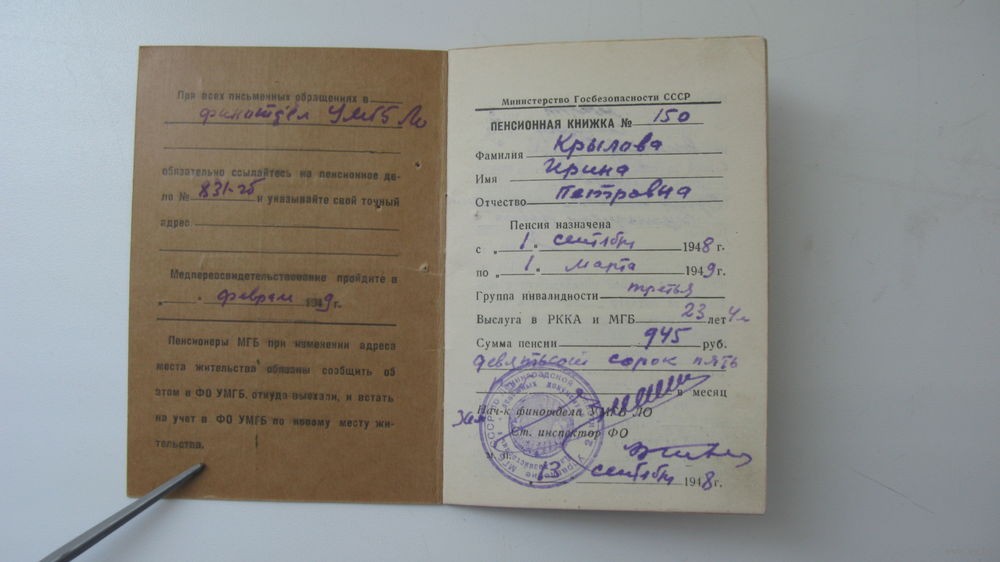 При всех письменных обращениях в
финотдел УМГБ ЛО
обязательно ссылайтесь на пенсионное де-
ло № 831-2б и указывайте свой точный
адрес
Медпереосвидетельствование пройдите в
" " феврале 1949 г.
Пенсионеры МГБ при изменении адреса
места жительства обязаны сообщить об
этом в ФО УМГБ, откуда выехали, и встать
на учет в ФО УМГБ по новому месту жи-
тельства.
Министерство Госбезопасности СССР
ПЕНСИОННАЯ КНИЖКА № 150
Фамилия Крылова
Имя Ирина
Отчество Петровна
Пенсия назначена
с „ 1 " сентября 1948 г.
по „ 1 " марта 1949 г.
Группа инвалидности третья
Выслуга в РККА и МГБ 23 лет
Сумма пенсии 945 руб.
девятьсот сорок пять
в месяц
Нач-к финотдела УМГБ ЛО
Ст. инспектор ФО
„ 13 сентября 1948 г.